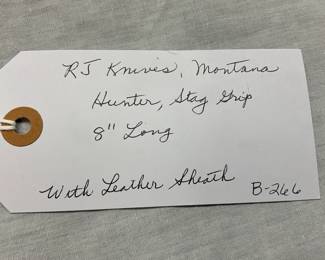 RJ Knives, Montana
Hunter, Stag Grip
8" Long
With Leather Sheath
B-266